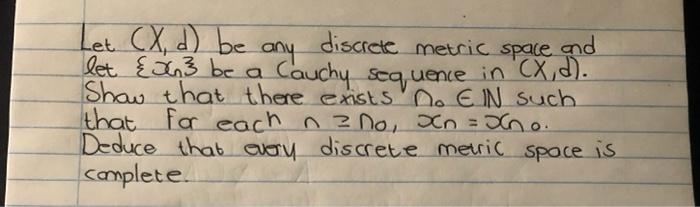 Let (X,d) be any discrete metric space and
let {xn} be a Cauchy sequence in (X,d).
Show that there exists n₀ ∈ ℕ such
that for each n ≥ n₀, xn = xn₀.
Deduce that every discrete metric space is
complete.